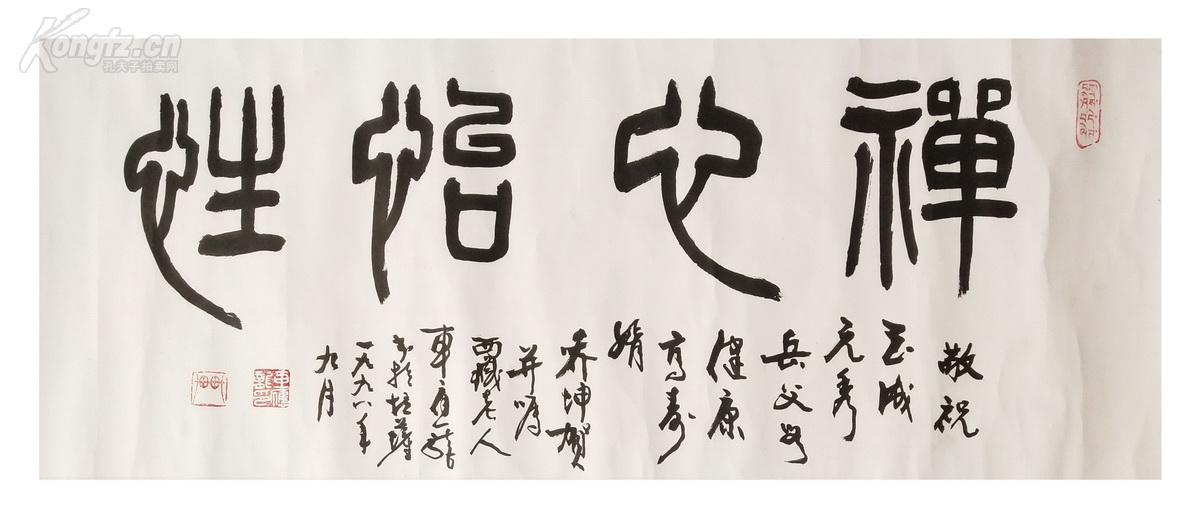 禪心怡性
敬祝
玉成
元秀
岳父母
健康
高壽
婿
乔坤賀
并嘱
西藏老人
車
於拉薩
一九九八年
九月
Kongfz.cn
孔夫子拍卖网